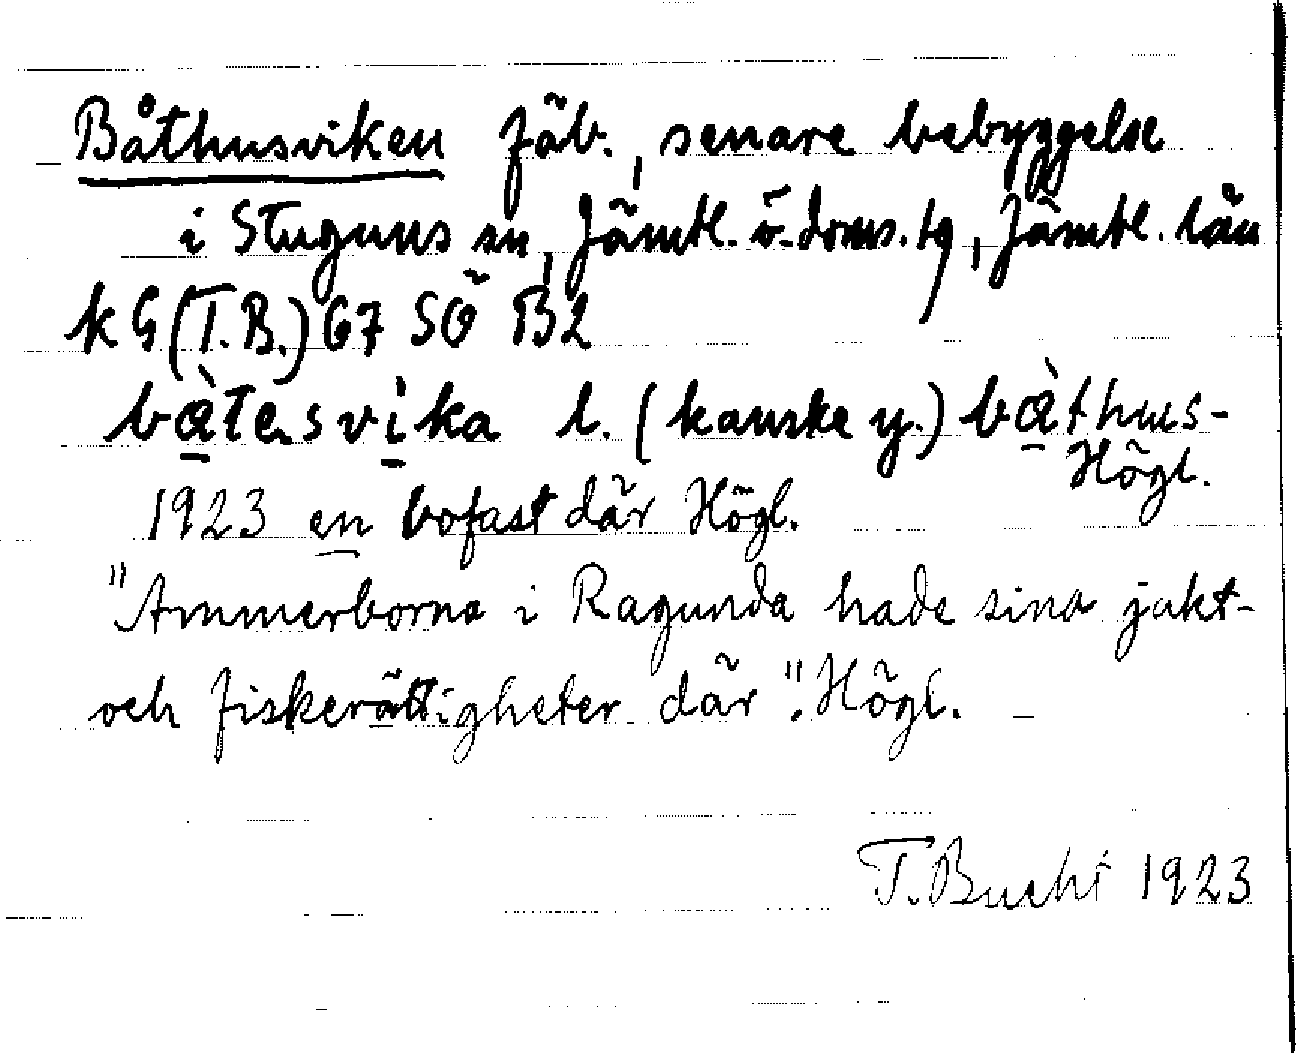 Båthusviken fäb., senare bebyggelse
i Stuguns sn, Jämtl. ö. doms. tg, Jämtl. län
k G (T.B.) 67 SÖ B2
bàtesvika l. (kanske y.) bàthus-
Högl.
1923 en bofast där Högl.
"Ammerborna i Ragunda hade sina jakt-
och fiskerättigheter där". Högl.
T. Bucht 1923